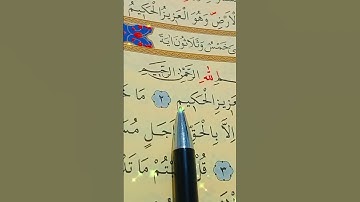 لْأَرْضِ وَهُوَ الْعَزِيزُ الْحَكِيمُ
خَمْسٌ وَثَلَاثُونَ اٰيَةً
اللّٰهِ الرَّحْمٰنِ الرَّحِيمِ
عَزِيزِ الْحَكِيمِ ٢ مَا خَ
اِلَّا بِالْحَقِّ اَجَلٍ مُسَ
٣ قُلْ مَا تَدْ